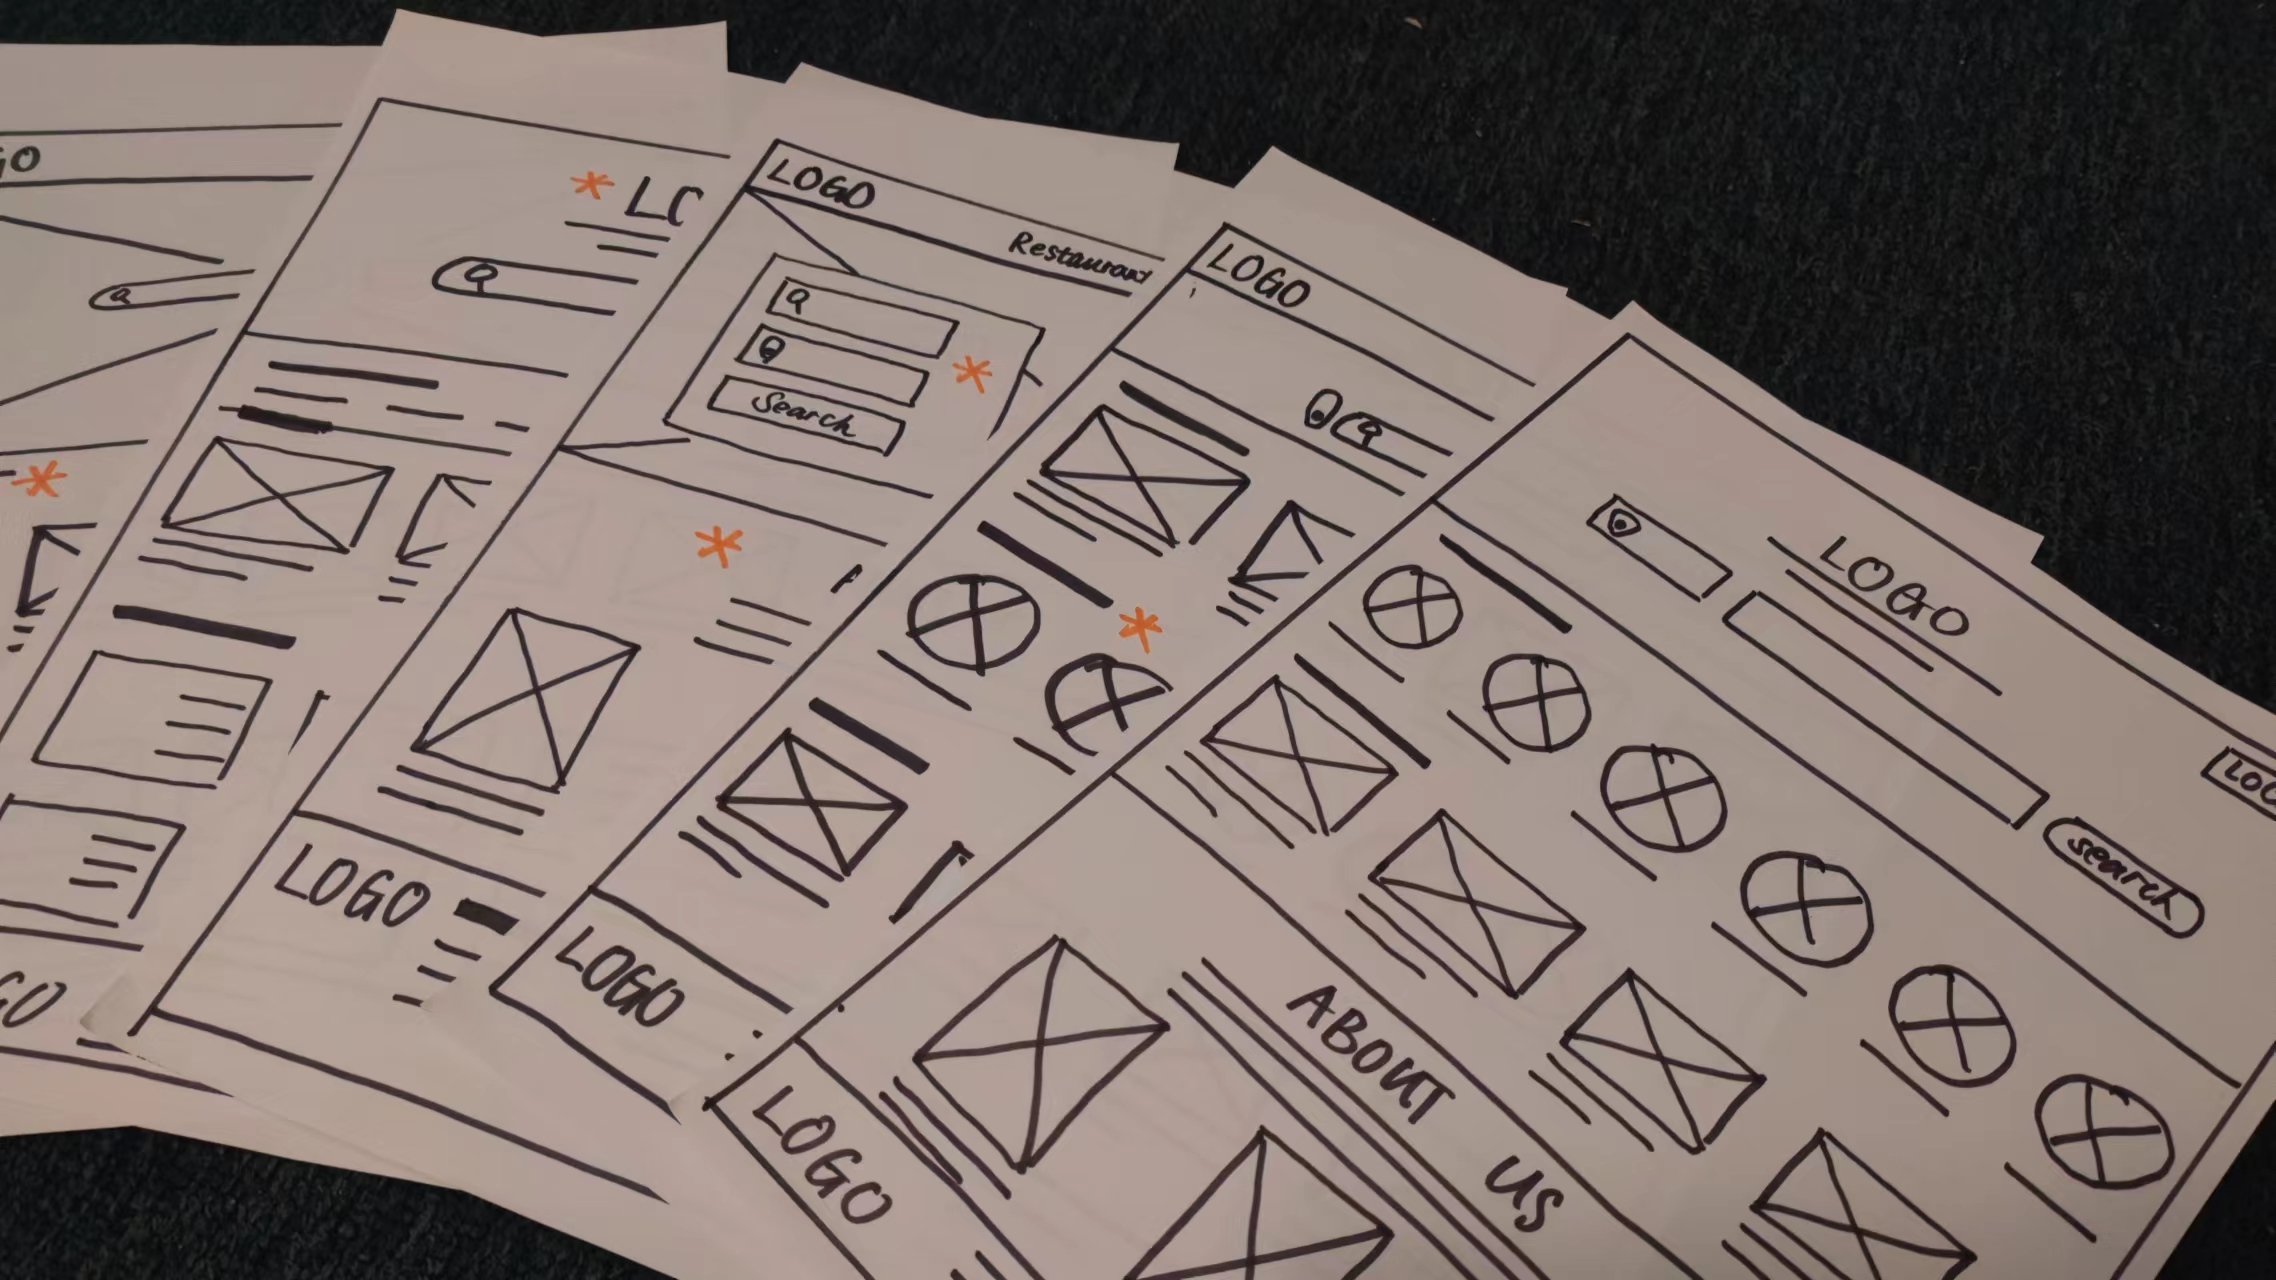 GO
GO
LO
LOGO
Restaurant
Search
LOGO
LOGO
LOGO
LOGO
LOG
search
ABOUT
US
LOGO